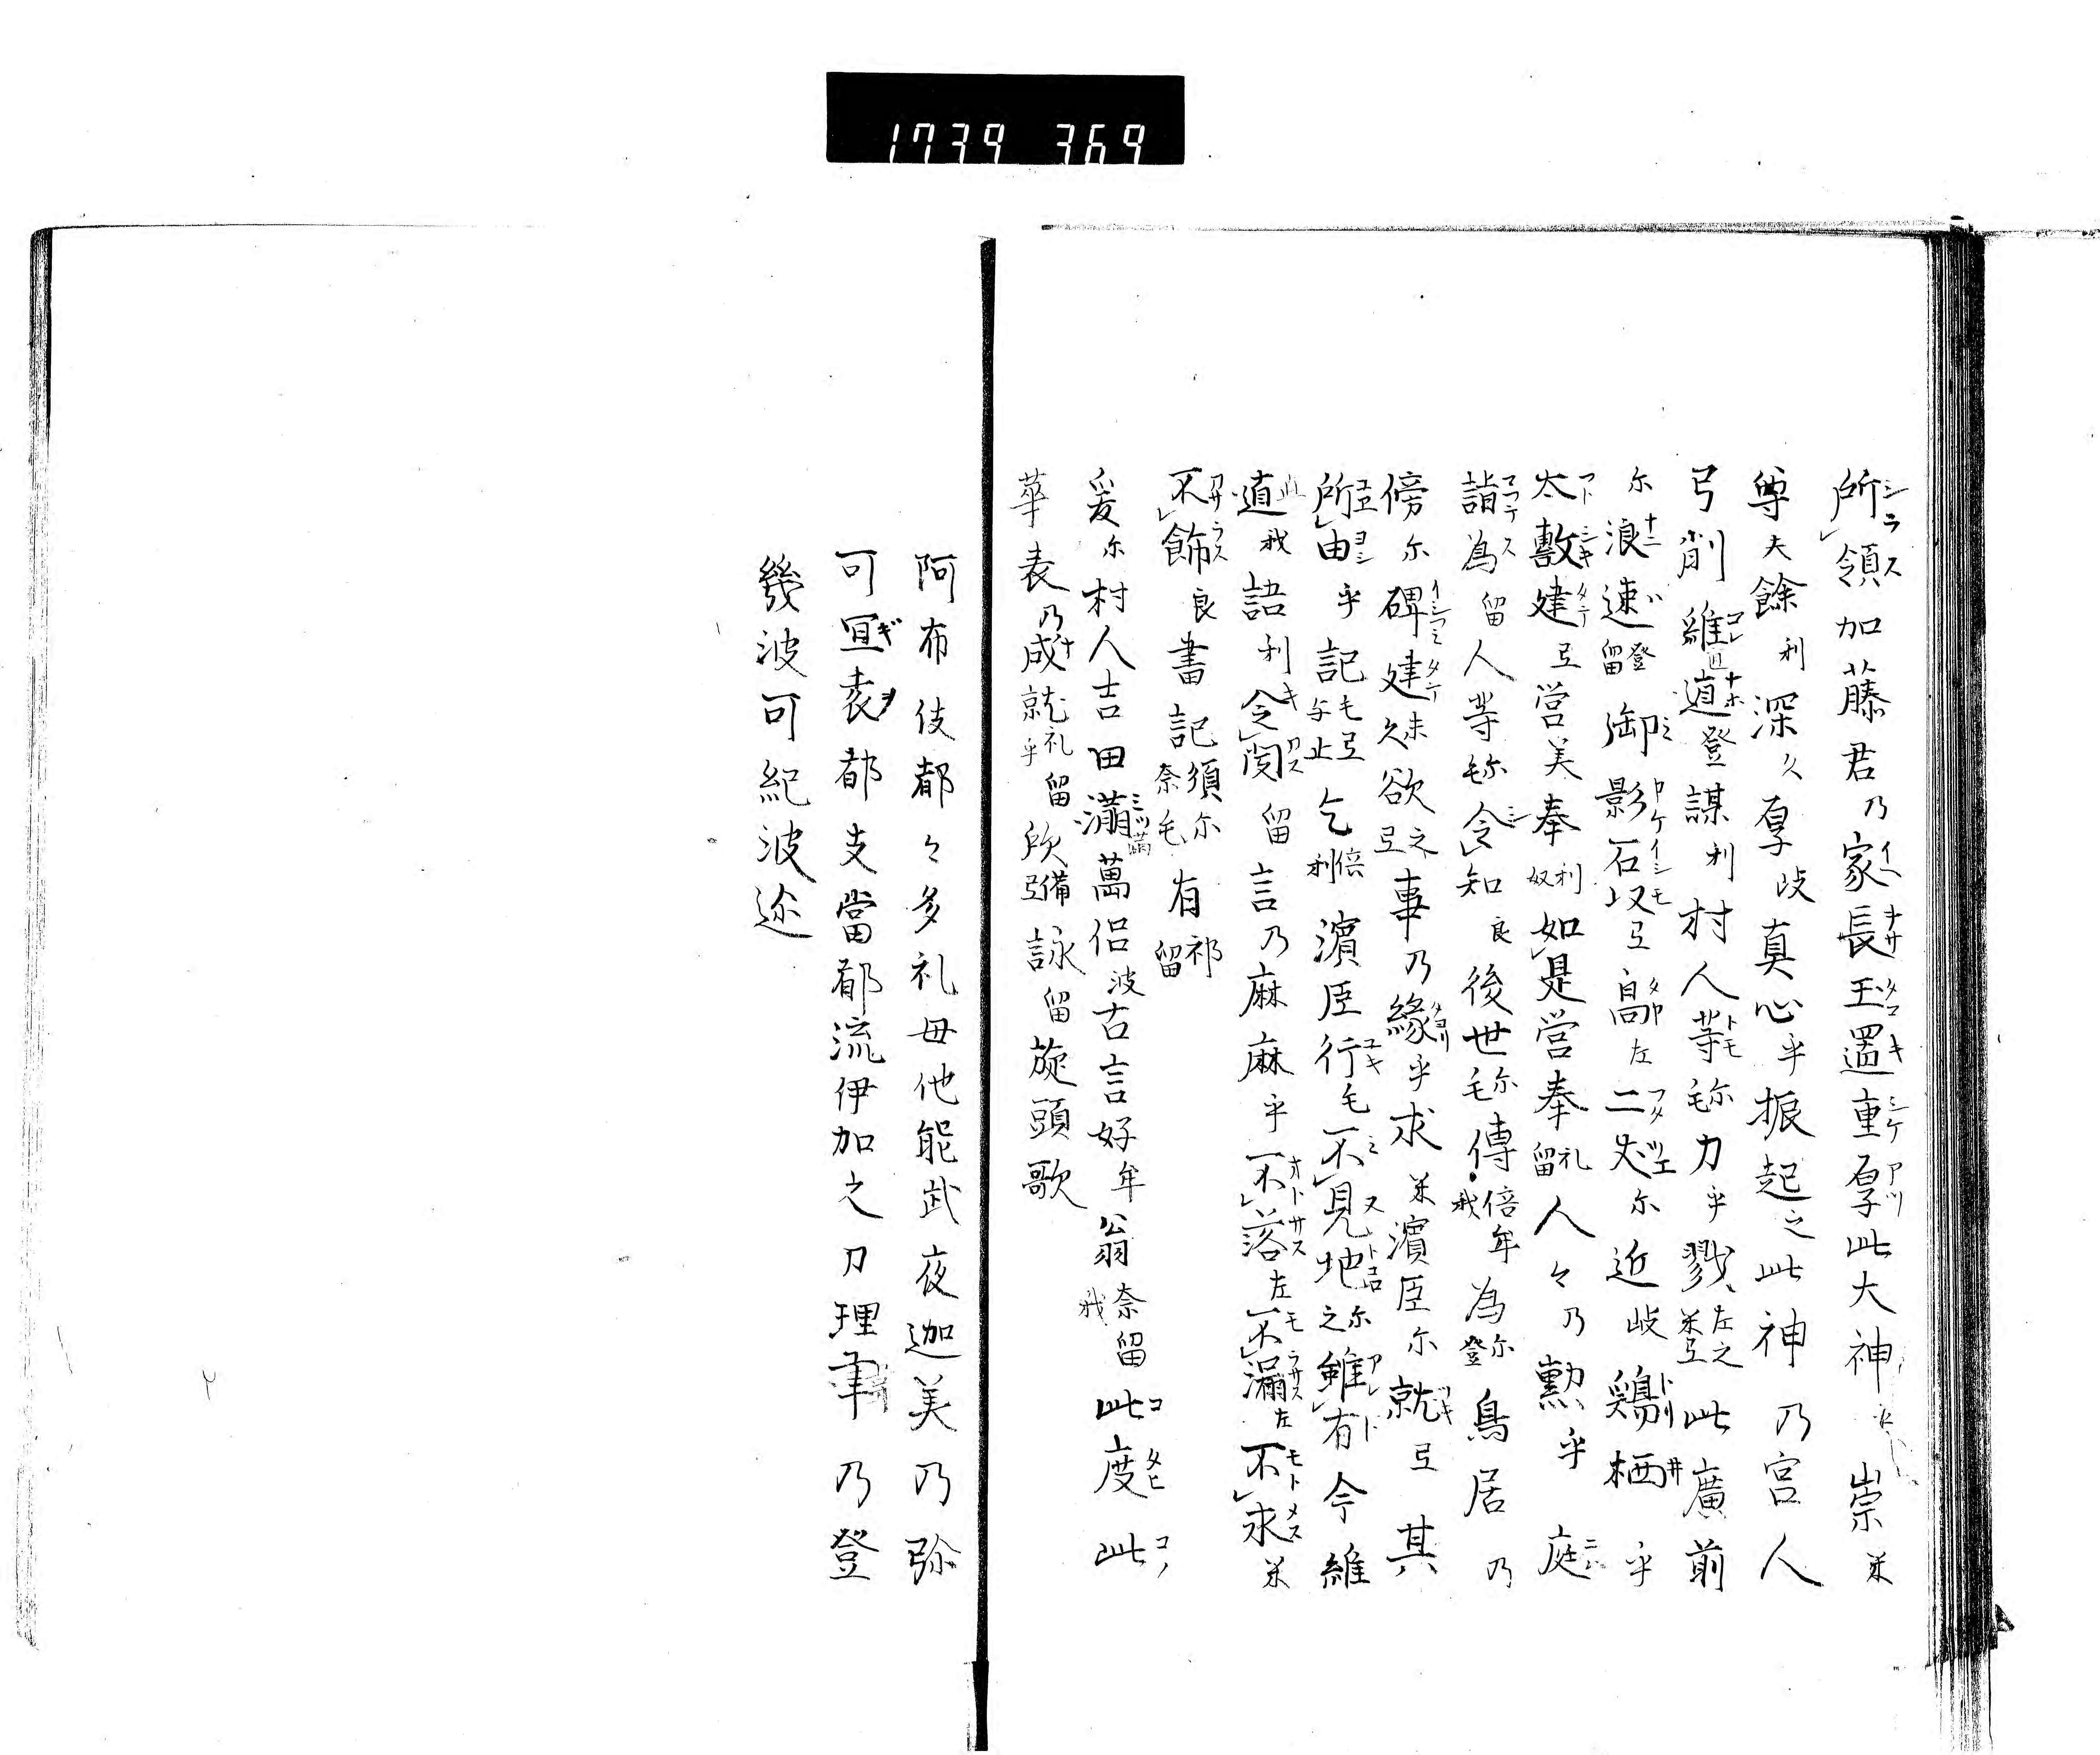 1739 369
所領加藤君乃家長玉置重厚此大神 崇米
尊夫餘利深久厚岐真心乎振起之此神乃宮人
弓削維道登謀利村人等毛弥力乎戮左之米弖此廣前
尓浪速登留御影石以弖高左二丈尓近岐鶏栖乎
太敷建弖営美奉利奴如是営奉礼留人々乃勲乎庭
詣為留人等毛弥令知良後世毛弥傳倍牟我為尓登鳥居乃
傍尓碑建未久欲之弖事乃縁乎求米濱臣尓就弖其
所由乎記毛弖与止乞倍利濱臣行毛不見地尓之雖有今維
道我語利令聞留言乃麻麻乎不落左不漏左不求米
不飾良書記須尓奈毛有祁留
爰尓村人吉田満萬侶波古言好牟翁奈留我此度此
華表乃成就礼留乎欣備弖詠留旋頭歌
阿布伎都々多礼毋他能武夜迦美乃弥
可冝袁都支當都流伊加之刀理聿乃登
幾波可紀波迩